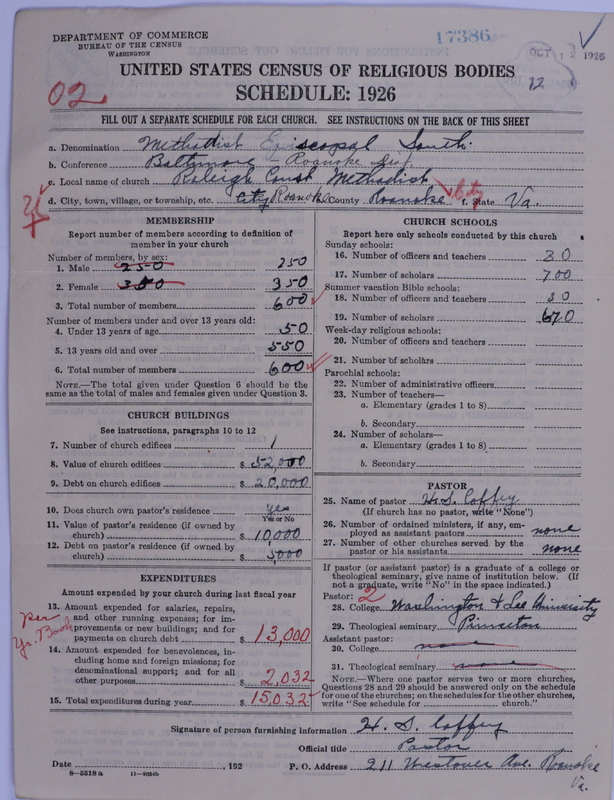 DEPARTMENT OF COMMERCE
BUREAU OF THE CENSUS
WASHINGTON
17386
OCT 12 1926
12
02
UNITED STATES CENSUS OF RELIGIOUS BODIES
SCHEDULE: 1926
FILL OUT A SEPARATE SCHEDULE FOR EACH CHURCH. SEE INSTRUCTIONS ON THE BACK OF THIS SHEET
a. Denomination Methodist Episcopal South
b. Conference Baltimore - Roanoke
c. Local name of church Raleigh Court Methodist
d. City, town, village, or township, etc. City Roanoke County Roanoke City f. State Va.
MEMBERSHIP
Report number of members according to definition of member in your church
Number of members, by sex:
1. Male 250 250
2. Female 350 350
3. Total number of members 600
Number of members under and over 13 years old:
4. Under 13 years of age 50
5. 13 years old and over 550
6. Total number of members 600
NOTE.—The total given under Question 6 should be the same as the total of males and females given under Question 3.
CHURCH BUILDINGS
See instructions, paragraphs 10 to 12
7. Number of church edifices 1
8. Value of church edifices $ 52,000
9. Debt on church edifices $ 20,000
10. Does church own pastor's residence yes
Yes or No
11. Value of pastor's residence (if owned by church) $ 10,000
12. Debt on pastor's residence (if owned by church) $ 5000
EXPENDITURES
Amount expended by your church during last fiscal year
per Yr. Book
13. Amount expended for salaries, repairs, and other running expenses; for improvements or new buildings; and for payments on church debt $ 13,000
14. Amount expended for benevolences, including home and foreign missions; for denominational support; and for all other purposes $ 2,032
15. Total expenditures during year $ 15,032
CHURCH SCHOOLS
Report here only schools conducted by this church
Sunday schools:
16. Number of officers and teachers 30
17. Number of scholars 700
Summer vacation Bible schools:
18. Number of officers and teachers 30
19. Number of scholars 670
Week-day religious schools:
20. Number of officers and teachers
21. Number of scholars
Parochial schools:
22. Number of administrative officers
23. Number of teachers—
a. Elementary (grades 1 to 8)
b. Secondary
24. Number of scholars—
a. Elementary (grades 1 to 8)
b. Secondary
PASTOR
25. Name of pastor H. S. Coffey
(If church has no pastor, write "None")
26. Number of ordained ministers, if any, employed as assistant pastors none
27. Number of other churches served by the pastor or his assistants none
If pastor (or assistant pastor) is a graduate of a college or theological seminary, give name of institution below. (If not a graduate, write "No" in the space indicated.)
Pastor: 2
28. College Washington & Lee University
29. Theological seminary Princeton
Assistant pastor:
30. College none
31. Theological seminary none
NOTE.—Where one pastor serves two or more churches, Questions 28 and 29 should be answered only on the schedule for one of the churches; on the schedules for the other churches, write "See schedule for church."
Signature of person furnishing information H. S. Coffey
Official title Pastor
Date , 192 P. O. Address 211 Westover Ave. Roanoke Va.
8-5518a 11-9054b